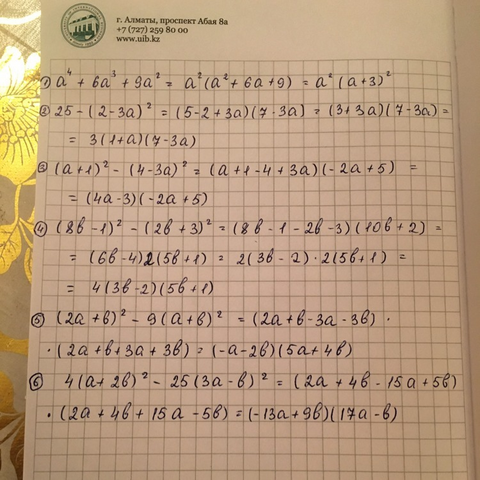 г. Алматы, проспект Абая 8а
+7 (727) 259 80 00
www.uib.kz
① a⁴ + 6a³ + 9a² = a²(a² + 6a + 9) = a²(a+3)²
② 25 - (2-3a)² = (5-2+3a)(7-3a) = (3+3a)(7-3a) =
= 3(1+a)(7-3a)
③ (a+1)² - (4-3a)² = (a+1-4+3a)(-2a+5) =
= (4a-3)(-2a+5)
④ (8b-1)² - (2b+3)² = (8b-1-2b-3)(10b+2) =
= (6b-4)2(5b+1) = 2(3b-2)·2(5b+1) =
= 4(3b-2)(5b+1)
⑤ (2a+b)² - 9(a+b)² = (2a+b-3a-3b) ·
· (2a+b+3a+3b) = (-a-2b)(5a+4b)
⑥ 4(a+2b)² - 25(3a-b)² = (2a+4b-15a+5b)
· (2a+4b+15a-5b) = (-13a+9b)(17a-b)